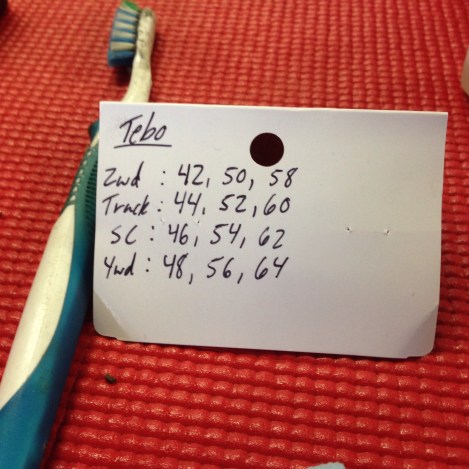 Tebo
2wd : 42, 50, 58
Truck : 44, 52, 60
SC : 46, 54, 62
4wd : 48, 56, 64